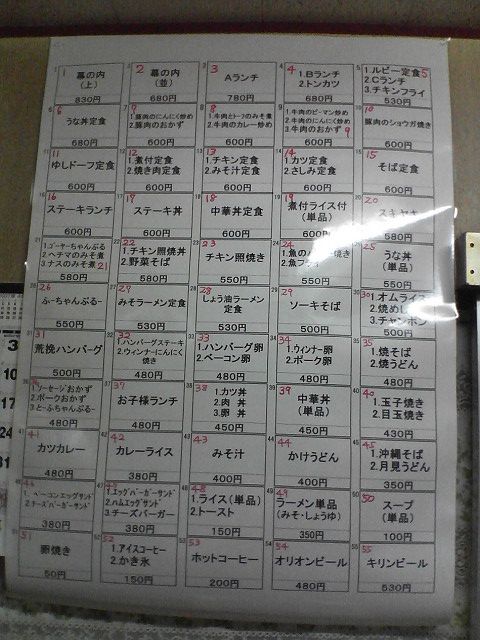 1 幕の内
(上)
830円
2 幕の内
(並)
680円
3 Aランチ
780円
4 1.Bランチ
2.トンカツ
680円
5 1.ルビー定食
2.Cランチ
3.チキンフライ
530円
6 うな丼定食
680円
7 1.豚肉のにんにく炒め
2.豚肉のおかず
600円
8 1.牛肉とトーフのみそ煮
2.牛肉のカレー炒め
600円
9 1.牛肉のピーマン炒め
3.牛肉のおかず
600円
10 豚肉のショウガ焼き
600円
11 ゆしドーフ定食
600円
12 1.煮付定食
2.焼き肉定食
600円
13 1.チキン定食
2.みそ汁定食
600円
14 1.カツ定食
2.さしみ定食
600円
15 そば定食
600円
16 ステーキランチ
600円
17 ステーキ丼
600円
18 中華丼定食
600円
19 煮付ライス付
(単品)
600円
20 スキヤキ
580円
21 1.ゴーヤーちゃんぷる
2.ヘチマのみそ煮
3.ナスのみそ煮
580円
22 1.チキン照焼丼
2.野菜そば
580円
23 チキン照焼き
550円
24
550円
25 うな丼
(単品)
550円
26 ふーちゃんぷるー
550円
27 みそラーメン定食
530円
28 しょう油ラーメン
定食
530円
29 ソーキそば
500円
30 1.オムライス
2.焼めし
3.チャンポン
500円
31 荒挽ハンバーグ
500円
32 1.ハンバーグステーキ
2.ウィンナーにんにく
焼き
480円
33 1.ハンバーグ卵
2.ベーコン卵
480円
34 1.ウィンナー卵
2.ポーク卵
480円
35 1.焼そば
2.焼うどん
480円
36 1.ソーセージおかず
2.ポークおかず
3.とーふちゃんぷるー
480円
37 お子様ランチ
480円
38 1.カツ丼
2.肉 丼
3.卵 丼
450円
39 中華丼
(単品)
450円
40 1.玉子焼き
2.目玉焼き
430円
41 カツカレー
480円
42 カレーライス
380円
43 みそ汁
400円
44 かけうどん
400円
45 1.沖縄そば
2.月見うどん
350円
46 1.ベーコンエッグサンド
2.チーズバーガーサンド
380円
47 1.エッグバーガーサンド
2.ハムエッグサンド
3.チーズバーガー
380円
48 1.ライス(単品)
2.トースト
150円
49 ラーメン単品
(みそ・しょうゆ)
350円
50 スープ
(単品)
100円
51 卵焼き
50円
52 1.アイスコーヒー
2.かき氷
150円
53 ホットコーヒー
200円
54 オリオンビール
480円
55 キリンビール
530円